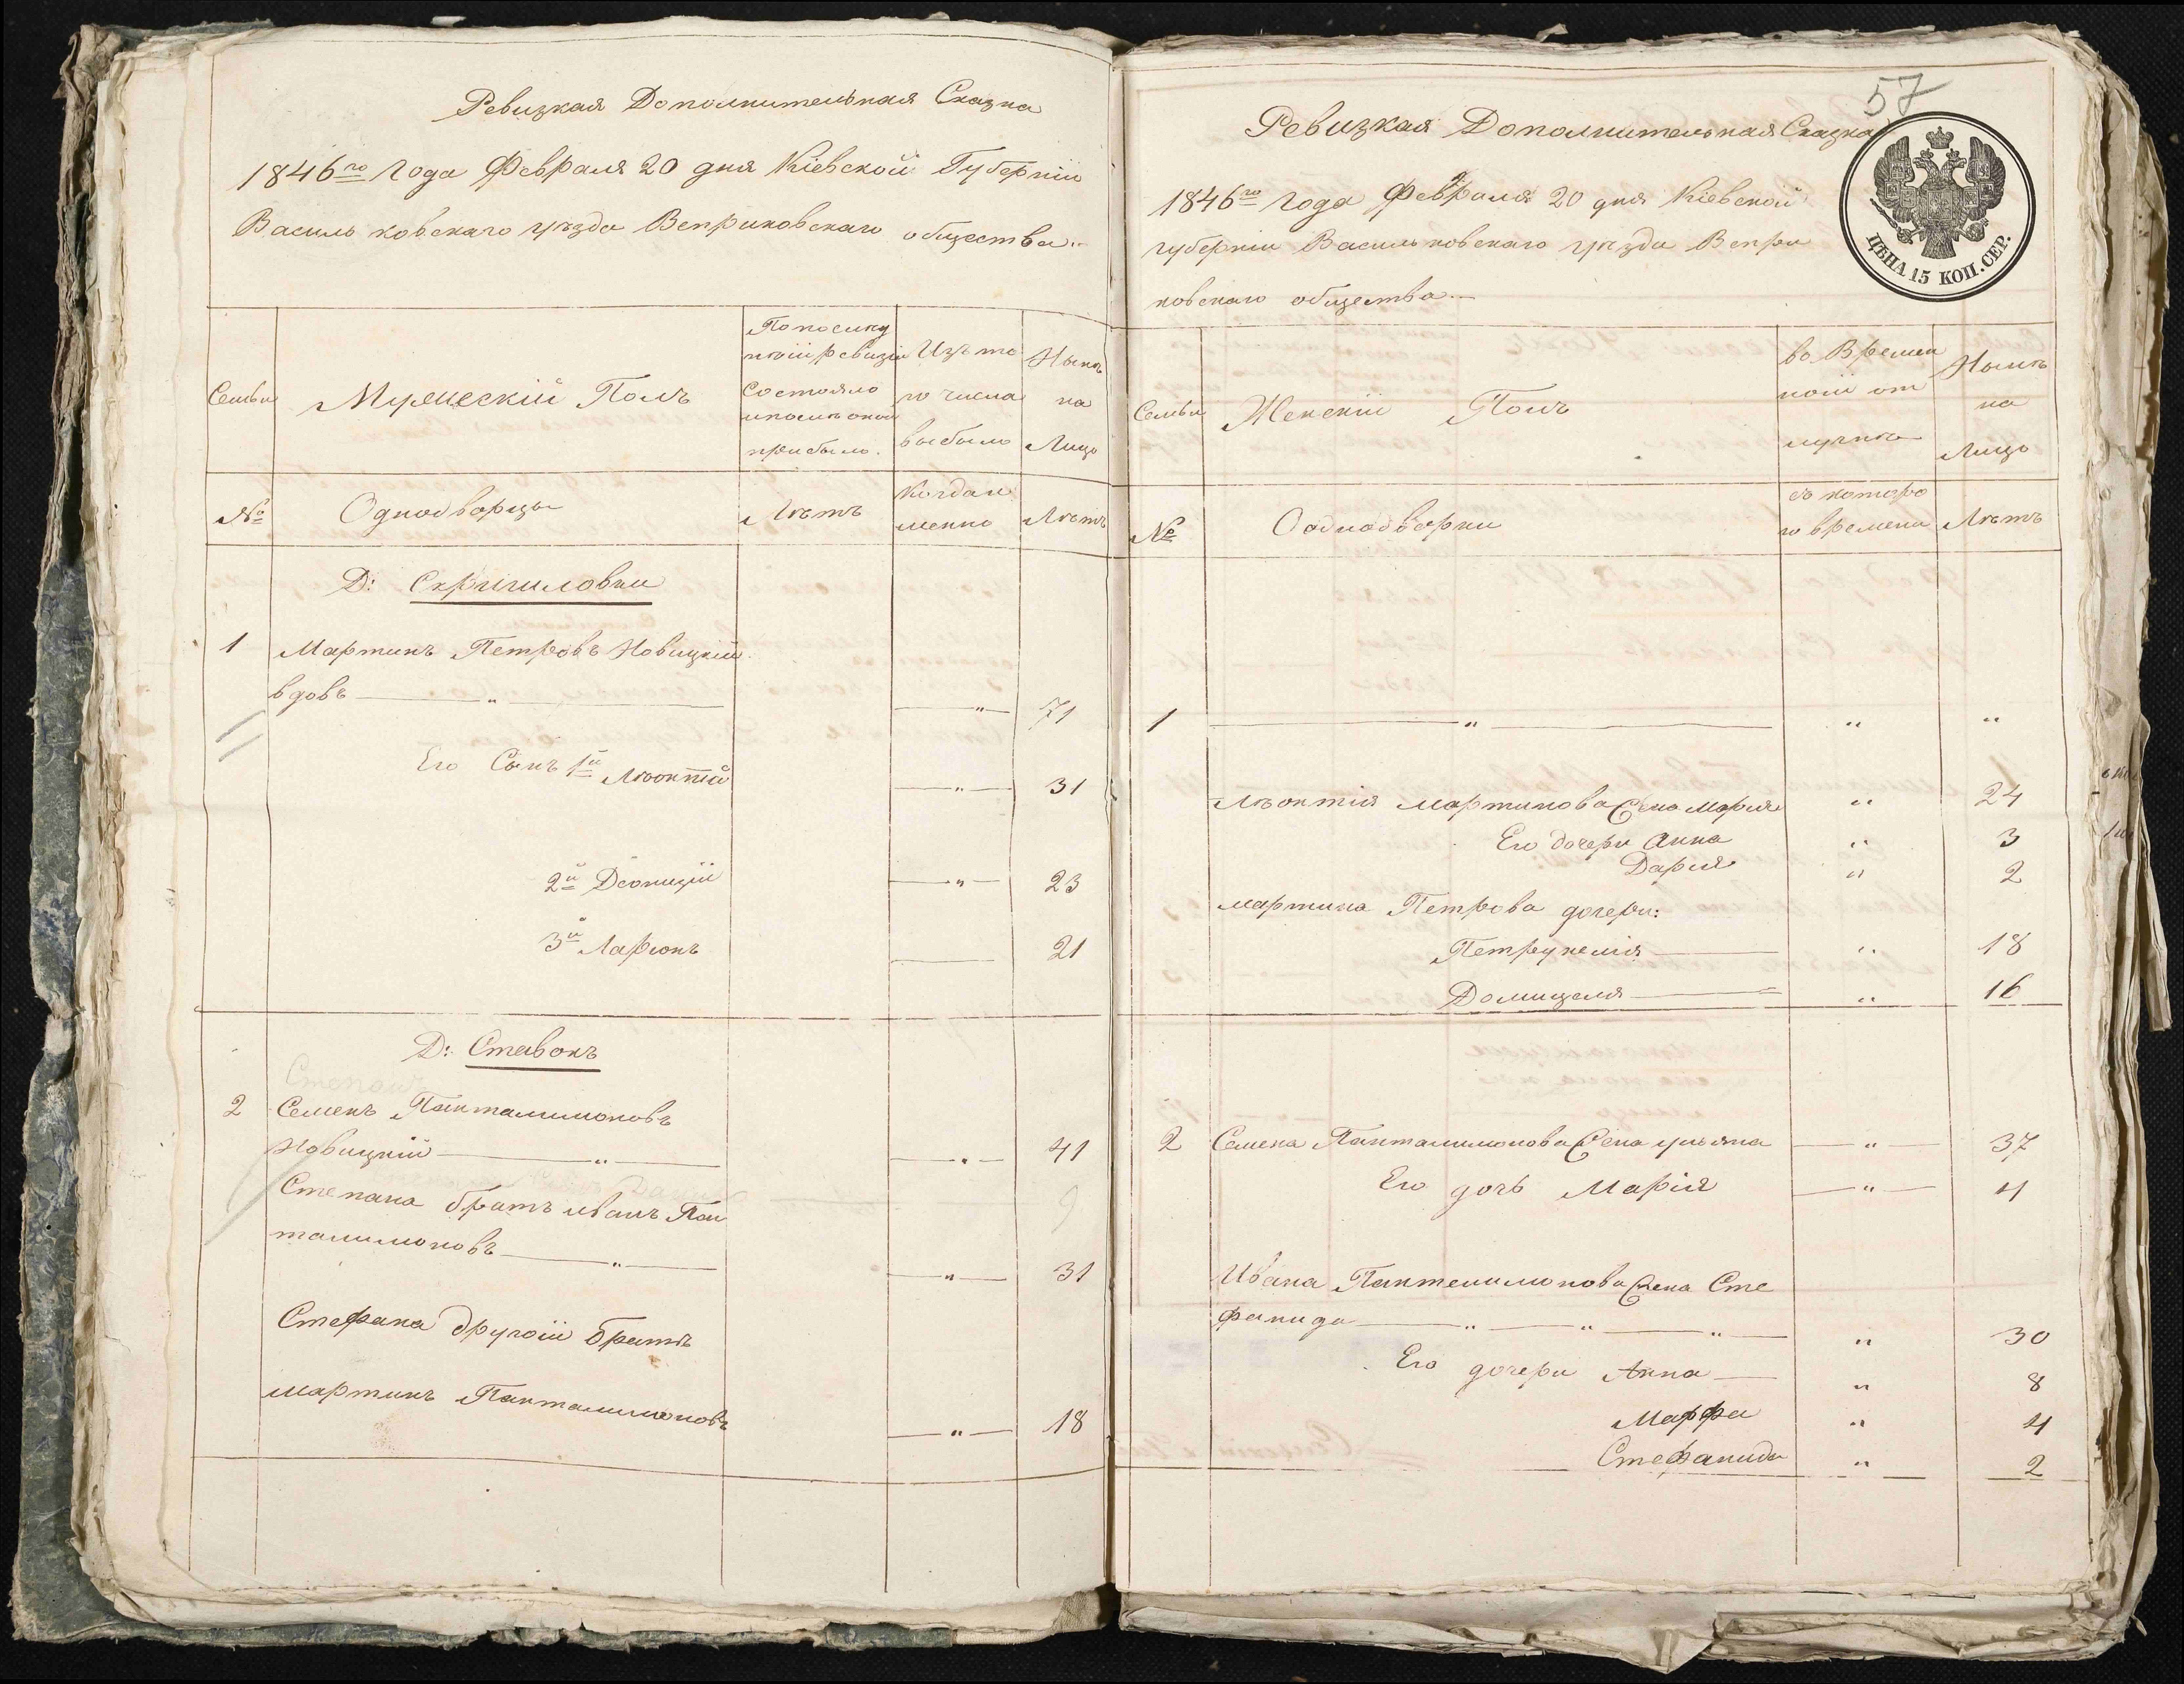 Ревизкая Дополнительная Сказка
1846го Года Февраля 20 дня Кіевской Губерніи
Васильковскаго уѣзда Веприковскаго общества.
Семьи
Мужескій Полъ
По послед
ней ревизіи
Состояло
и после оной
прибыло.
Изъ то
го числа
выбыло
Нынѣ
на
Лицо
№
Однодворцы
Лѣтъ
Когда и
менно
Лѣтъ
Д: Скригиловки
1 Мартинъ Петровъ Новицкій
вдовъ — " — — " — 71
Его Сынъ 1й Лѣонтій — " — 31
2й Дѣонизій — " — 23
3й Ларіонъ — 21
Д: Ставокъ
Степанъ
2 Семенъ Панталимоновъ
Новицкій — " — — " — 41
9
Степана братъ иванъ Пан
талимоновъ — " — — " — 31
Стефана другой братъ
мартинъ Панталимоновъ — " — 18
57
Ревизкая Дополнительная Сказка
1846го года Февраля 20 дня Кіевской
губерніи Васильковскаго уѣзда Вепри
ковскаго общества.
ЦѢНА 15 КОП. СЕР.
Семьи
Женскій Полъ
во Времен
ной от
лучке
Нынѣ
на
Лицо
№
Однодворки
съ которо
го времени
Лѣтъ
1 — " — " "
Лѣонтія мартинова Жена Марія " 24
Его дочери Анна " 3
Дарія " 2
мартина Петрова дочери:
Петрунелія — " 18
Домицеля — " 16
2 Семена Панталимонова Жена ульяна — " — 37
Его дочь Марія — " — 4
Ивана Пантелимонова Жена Сте
фанида — " — " — " — " 30
Его дочери Анна — " 8
Марфа " 4
Стефанида " 2